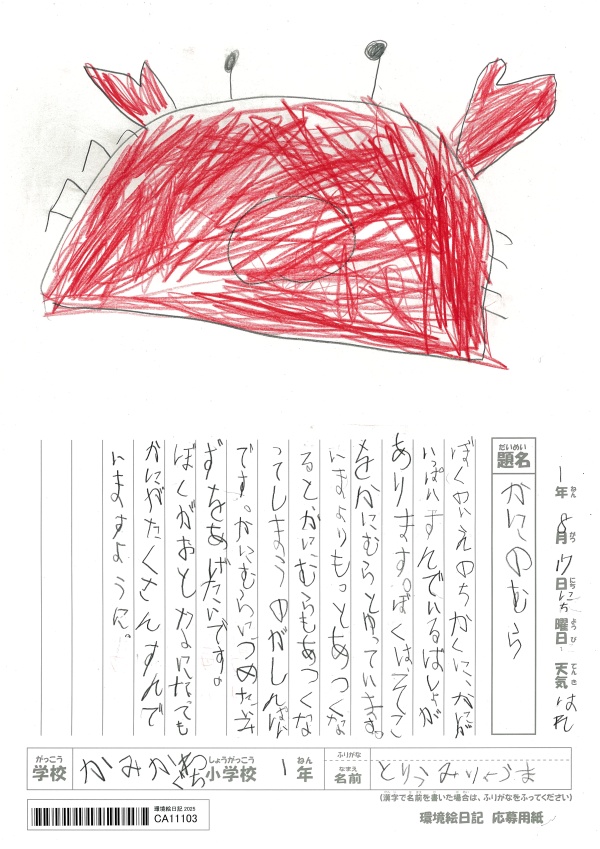 1年ねん 8月がつ 17日にち にち曜日ようび 天気てんき はれ
題名だいめい かにのむら
ぼくのいえのちかくに、かにが
いっぱいすんでいるばしょが
あります。ぼくはそこ
をかにむらとゆっています。
いまよりもっとあつくな
るとかにむらもあつくな
ってしまうのがしんぱい
です。かにむらにつめたいみ
ずをあげたいです。
ぼくがおとなになっても
かにがたくさんすんで
いますように。
がっこう しょうがっこう ねん ふりがな
学校 かみかわぐち 小学校 1年 なまえ 名前 とりうみ
(漢字で名前を書いた場合は、ふりがなをふってください)
環境絵日記 応募用紙
環境絵日記 2025
CA11103